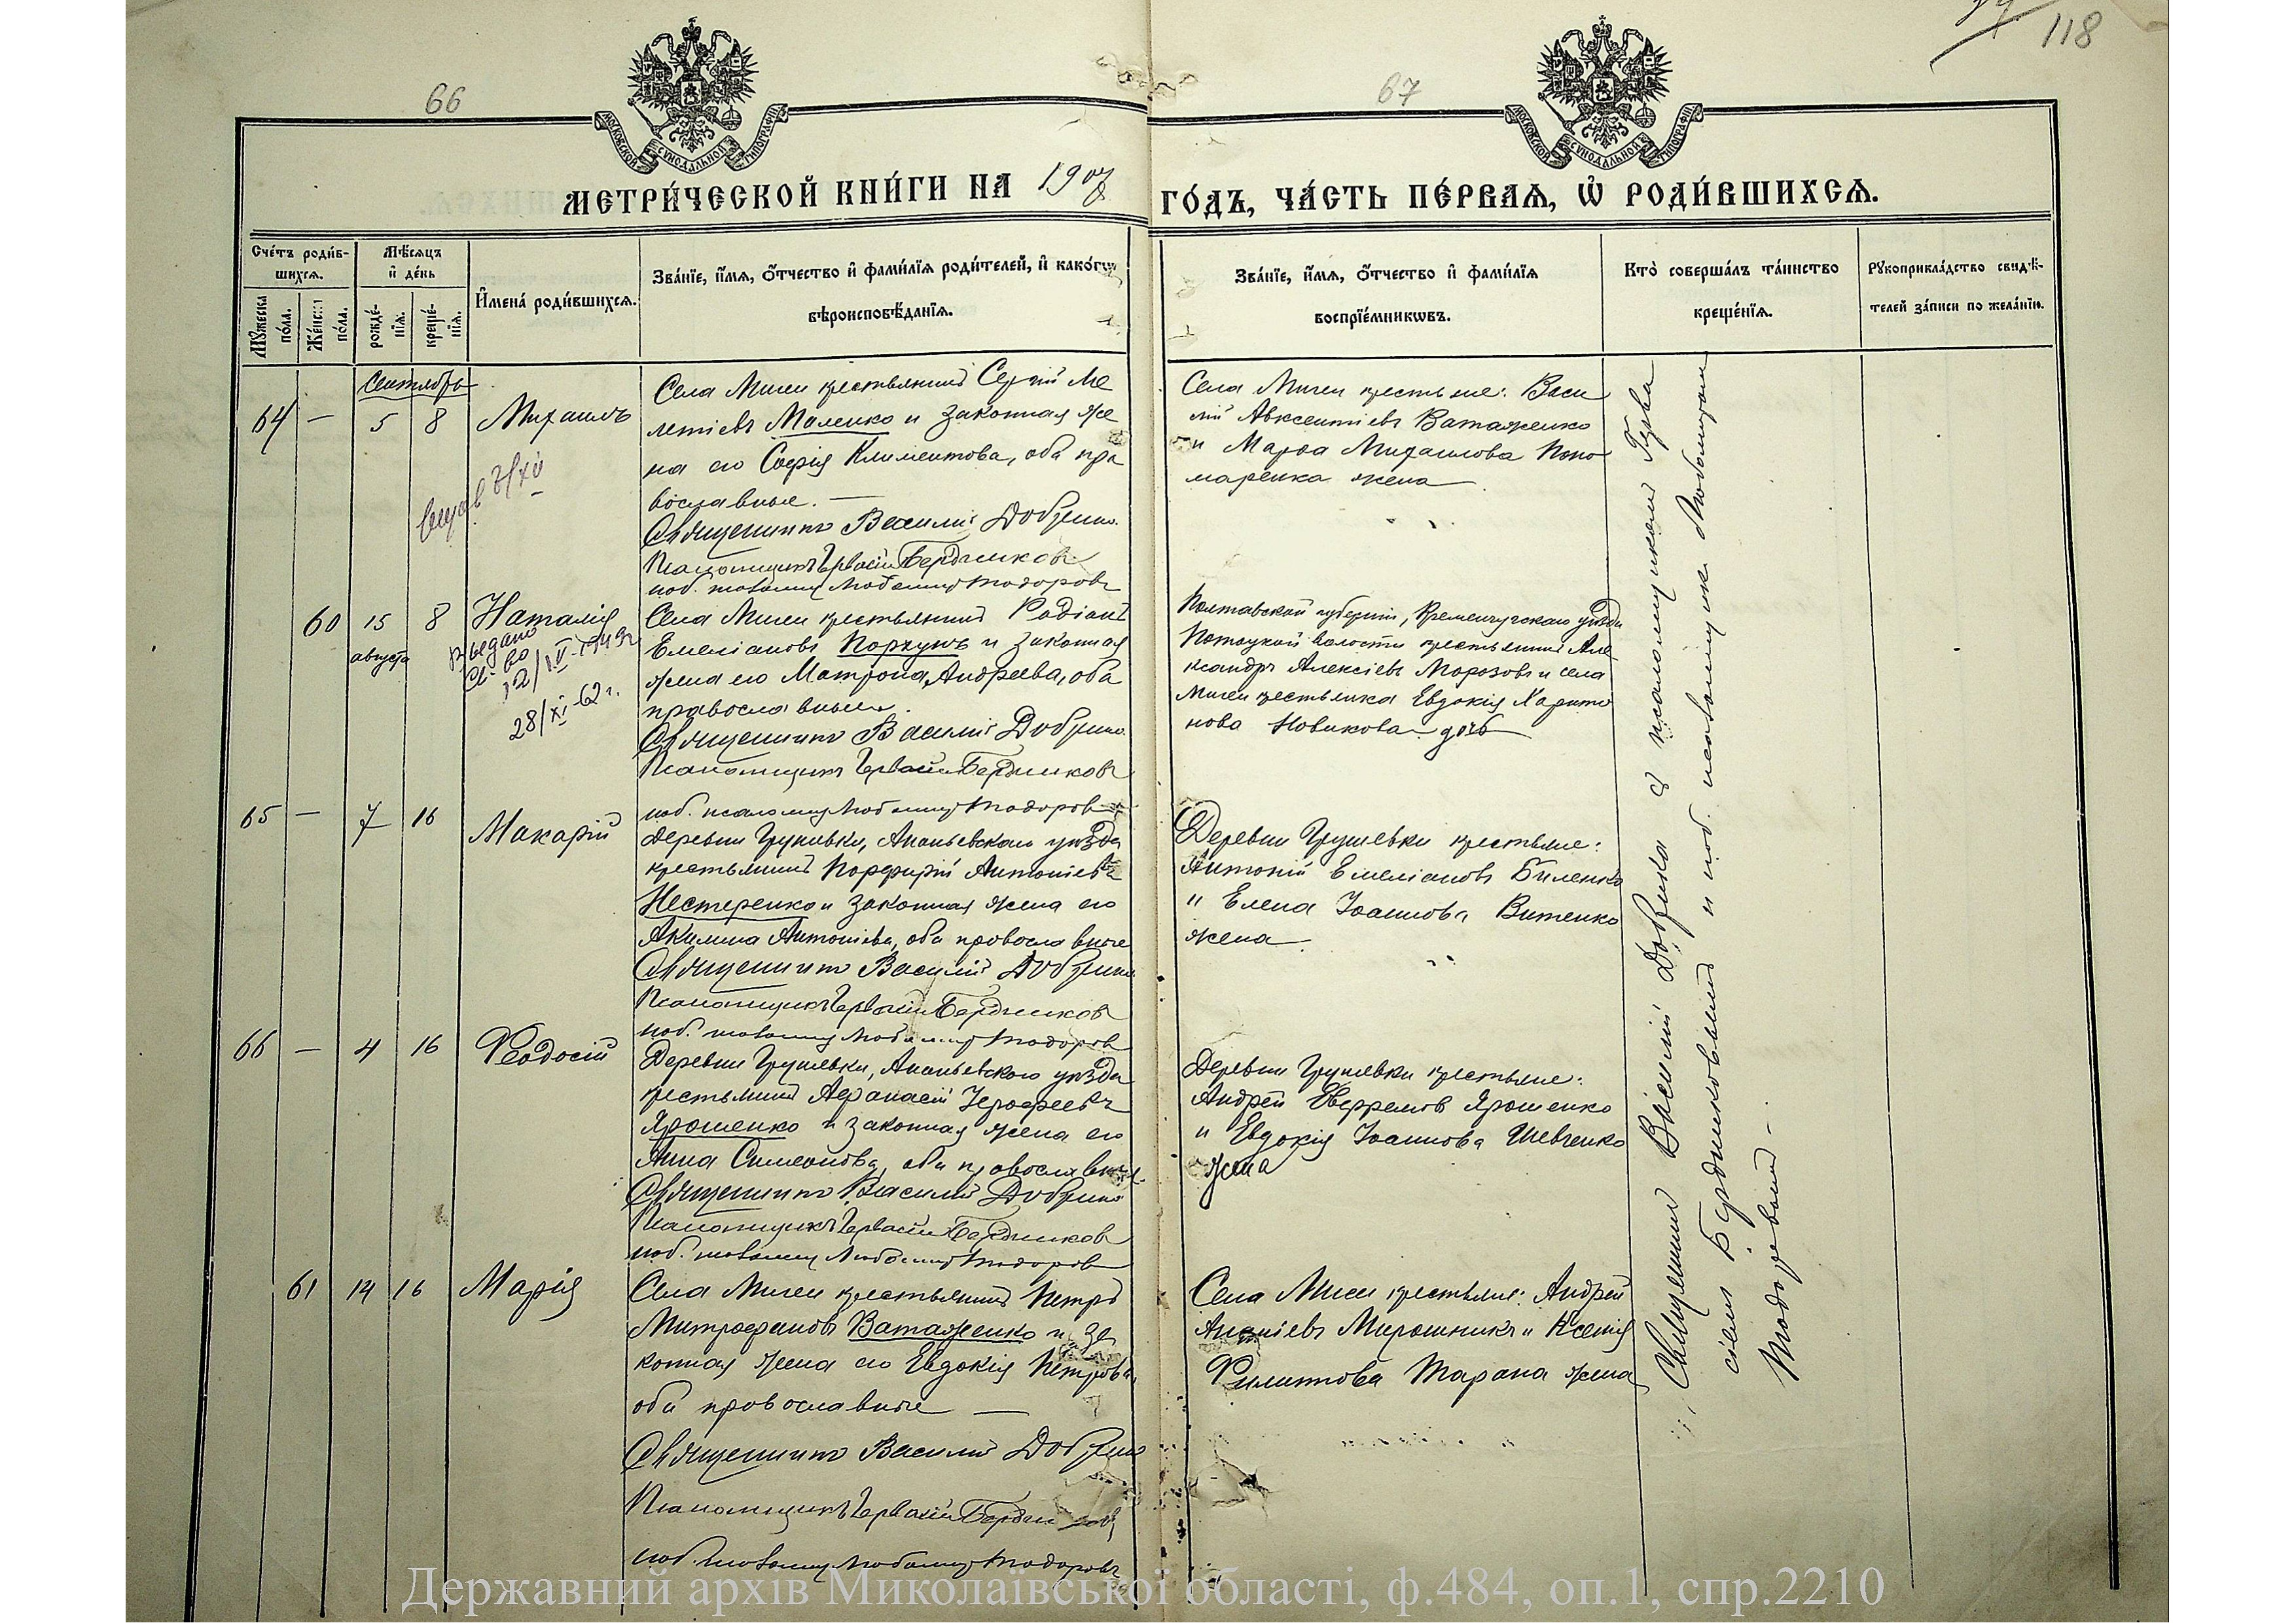 66
67
118
МОСКОВСКОЙ СѴНОДАЛЬНОЙ ТИПОГРАФІИ
МОСКОВСКОЙ СѴНОДАЛЬНОЙ ТИПОГРАФІИ
МЕТРИ́ЧЕСКОЙ КНИ́ГИ НА 1907
ГО́ДЪ, ЧА́СТЬ ПЕ́РВАѦ, Ѡ҆ РОДИ́ВШИХСѦ.
Сче́тъ роди́в-
шихсѧ.
Мѣ́сѧцъ
и҆ де́нь
Мꙋ́жеска по́ла.
Же́нска по́ла.
рожде́-
нїѧ.
креще́-
нїѧ.
И҆мена̀ роди́вшихсѧ.
Зва́нїе, и҆́мѧ, ѻ҆́тчество и҆ фами́лїѧ роди́телей, и҆ како́гѡ
вѣроисповѣ́данїѧ.
Зва́нїе, и҆́мѧ, ѻ҆́тчество и҆ фами́лїѧ
воспрїе́мникѡвъ.
Кто̀ соверша́лъ та́инство
креще́нїѧ.
Рꙋкоприкла́дство свидѣ́-
телей за́писи по жела́нїю.
Сентябрь
64 — 5 8 Михаилъ
Села Мигеи крестьянинъ Сергій Ме
летіевъ Маленко и законная же
на его Софія Климентова, оба пра
вославные. —
Священникъ Василій Добрина
Псаломщикъ Гервасій Бердниковъ
поб. псаломщ. Любомиръ Тодоровъ
Села Мигеи крестьяне: Васи
лій Авксентіевъ Ватаженко
и Марѳа Михаилова Поно
маренка жена
60 15 8 Наталія
августа
Выдано
св-во
28/XI-62 г.
Села Мигеи крестьянинъ Родіонъ
Емеліановъ Поркунъ и законная
жена его Матрона Андреева, оба
православные.
Священникъ Василій Добрина
Псаломщикъ Гервасій Бердниковъ
поб. псаломщ. Любомиръ Тодоровъ
Полтавской губерніи, Кременчугскаго уѣзда
Потоцкой волости крестьянинъ Але
ксандръ Алексіевъ Морозовъ и села
Мигеи крестьянка Евдокія Харито
нова Новикова дочь
65 — 7 16 Макарій
Деревни Грушевки, Ананьевскаго уѣзда
крестьянинъ Порфирій Антоніевъ
Нестеренко и законная жена его
Акилина Антоніева, оба православные
Священникъ Василій Добрина
Псаломщикъ Гервасій Бердниковъ
поб. псаломщ. Любомиръ Тодоровъ
Деревни Грушевки крестьяне:
Антоній Емеліановъ Биленко
и Елена Іоаннова Витенко
жена
66 — 4 16 Ѳеодосій
Деревни Грушевки, Ананьевскаго уѣзда
крестьянинъ Аѳанасій Іерофеевъ
Ярошенко и законная жена его
Анна Симеонова, оба православные.
Священникъ Василій Добрина
Псаломщикъ Гервасій Бердниковъ
поб. псаломщ. Любомиръ Тодоровъ
Деревни Грушевки крестьяне:
Андрей Евфремов Ярошенко
и Евдокія Іоаннова Шевченко
жена
61 14 16 Марія
Села Мигеи крестьянинъ Петръ
Митрофановъ Ватаженко и за
конная жена его Евдокія Петрова
оба православные —
Священникъ Василій Добрина
Псаломщикъ Гервасій Бердниковъ
поб. псаломщ. Любомиръ Тодоровъ
Села Мигеи крестьяне: Андрей
Ананіевъ Мирошникъ и Ксенія
Филиппова Тарана жена
Священникъ Василій Добрина съ псаломщикомъ Герва
сіемъ Бердниковымъ и поб. псаломщик. Любомиром
Тодоровымъ —
Державний архів Миколаївської області, ф.484, оп.1, спр.2210